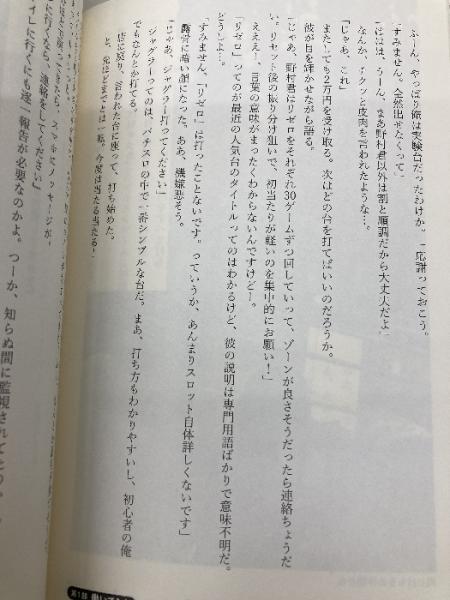 ふーん、やっぱり俺は実験台だったわけか。一応謝っておこう。
「すみません。全然出せなくって」
「ははは、うーん、まあ野村君以外は割と順調だから大丈夫だよ」
なんか、チクッと皮肉を言われたような…。
「じゃあ、これ」
またしても2万円を受け取る。次はどの台を打てばいいのだろうか。
彼が目を輝かせながら語る。
「じゃあ、野村君はリゼロをそれぞれ30ゲームずつ回していって、ゾーンが良さそうだったら連絡ちょうだ
い。リセット後の振り分け狙いで、初当たりが軽いのを集中的にお願い！」
えええ！、言葉の意味がまったくわからないんですけどー。
「リゼロ」ってのが最近の人気台のタイトルってのはわかるけど、彼の説明は専門用語ばかりで意味不明だ。
どうしよ…。
「すみません、「リゼロ」は打ったことないです。っていうか、あんまりスロット自体詳しくないです」
露骨に暗い顔になった。ああ、機嫌悪そう。
「じゃあ、ジャグラー打ってください」
ジャグラーってのは、パチスロの中で一番シンプルな台だ。まあ、打ち方もわかりやすいし、初心者の俺
でもなんとか打てる。
店に戻り、言われた台に座って、打ち始めた。
と、先ほどまでとは一転。今度は当たる当たる！
戻ってきたら、スマホにメッセージが。
に行くなら、連絡をしてください」
イレに行くにも逐一報告が必要なのかよ。つーか、知らぬ間に監視されてたの
第1話